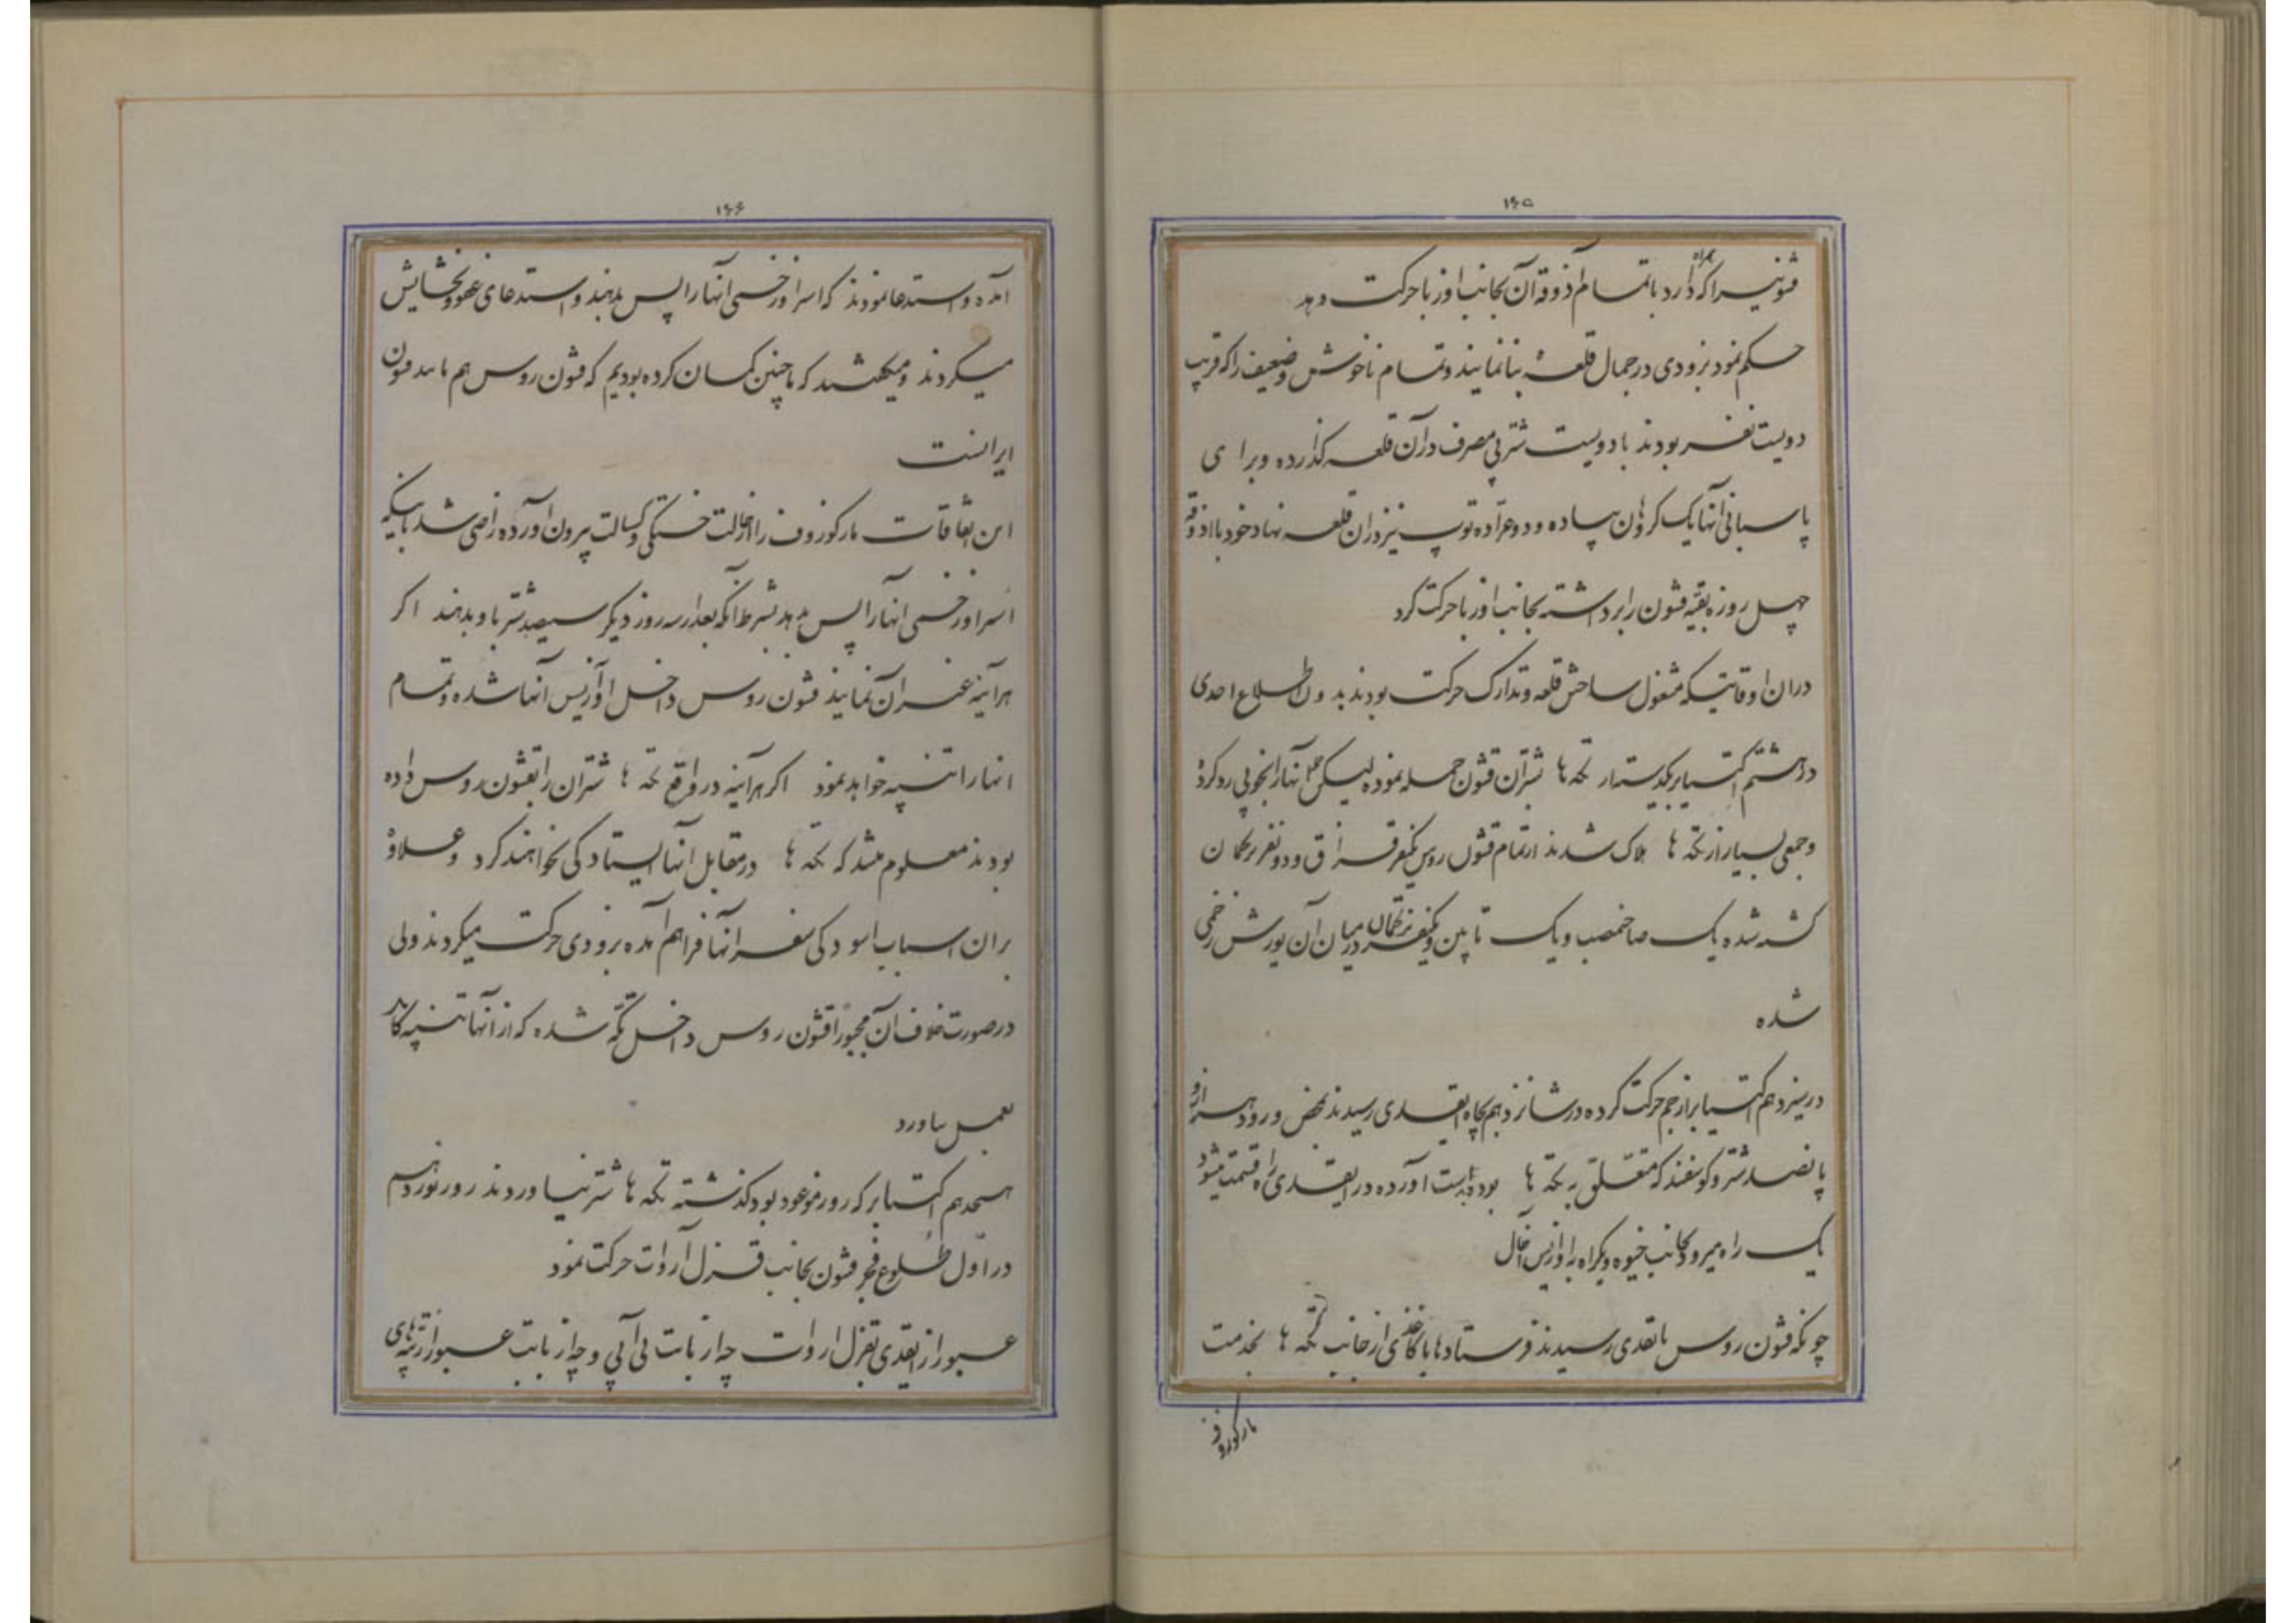 ۱۶۵
قشونیرا که همراه دارد با تمام آذوقه آن بجانب اوزبا حرکت دهد
حکم نمود بزودی در جمال قلعه بنا نمایند و تمام ناخوش و ضعیف را که قریب
دویست نفر بودند با دویست شتر بی مصرف در آن قلعه گذارده و برای
پاسبانی آنها یک کروهان پیاده و دو عراده توپ نیز در ان قلعه نهاد خود با اذوقه
چهل روزه بقیه قشون را برداشته بجانب اوزبا حرکت کرد
در ان اوقاتیکه مشغول ساختن قلعه و تدارک حرکت بودند بدون اطلاع احدی
در هشتم اکتیابر یکدسته از تکه ها بشتران قشون حمله نموده لیکن حمله آنها را بخوبی رد کرده
و جمعی بسیار از تکه ها هلاک شدند از تمام قشون روس یکنفر قزاق و دو نفر ترکمان
کشته شده یک صاحمنصب و یک تابین و یکنفر ترکمان در میان آن یورش زخمی
شده
در سیزدهم اکتیابر از جم حرکت کرده در شانزدهم بچاه ایقدی رسیدند بمحض ورود هزار و
پانصد شتر و کوسفند که متعلق به تکه ها بوده بدست آورده در ایقدی راه قسمت میشود
یک راه میرود بجانب خیوه و یکراه به اوازیس آخال
چونکه قشون روس بایقدی رسیدند فرستادها با کاغذی از جانب تکه ها بخدمت
مارکوزوف
۱۶۶
آمده و استدعا نمودند که اسرا و زخمی آنها را پس بدهند و استدعای عفو و بخشایش
میکردند و میکفتند که ما چنین کمان کرده بودیم که قشون روس هم مانند قشون
ایرانست
این اتفاقات مارکوزوف را از حالت خستکی و کسالت بیرون آورده راضی شد باینکه
اسرا و زخمی انها را پس بدهد بشرط آنکه بعد از سه روز دیکر سیصد شتر باو بدهند اکر
هر آینه غیر از آن نمایند قشون روس داخل اوازیس آنها شده و تمام
انها را تنبیه خواهد نمود اکر هر آینه در واقع تکه ها شتران را بقشون روس داده
بودند معلوم میشد که تکه ها در مقابل انها ایستادکی نخواهند کرد و علاوه
بر ان اسباب اسودکی سفر انها فراهم آمده بزودی حرکت میکردند ولی
در صورت خلاف آن مجبوراً قشون روس داخل تکه شده که از آنها تنبیه کامل
بعمل بیاورد
هیجدهم اکتیابر که روز موعود بود کذشته تکه ها شتر نیاوردند روز نوزدهم
در اول طلوع فجر قشون بجانب قزل آروات حرکت نمود
عبور از ایقدی بقزل اروات چه از بابت بی آبی و چه از بابت عبور از تپه های